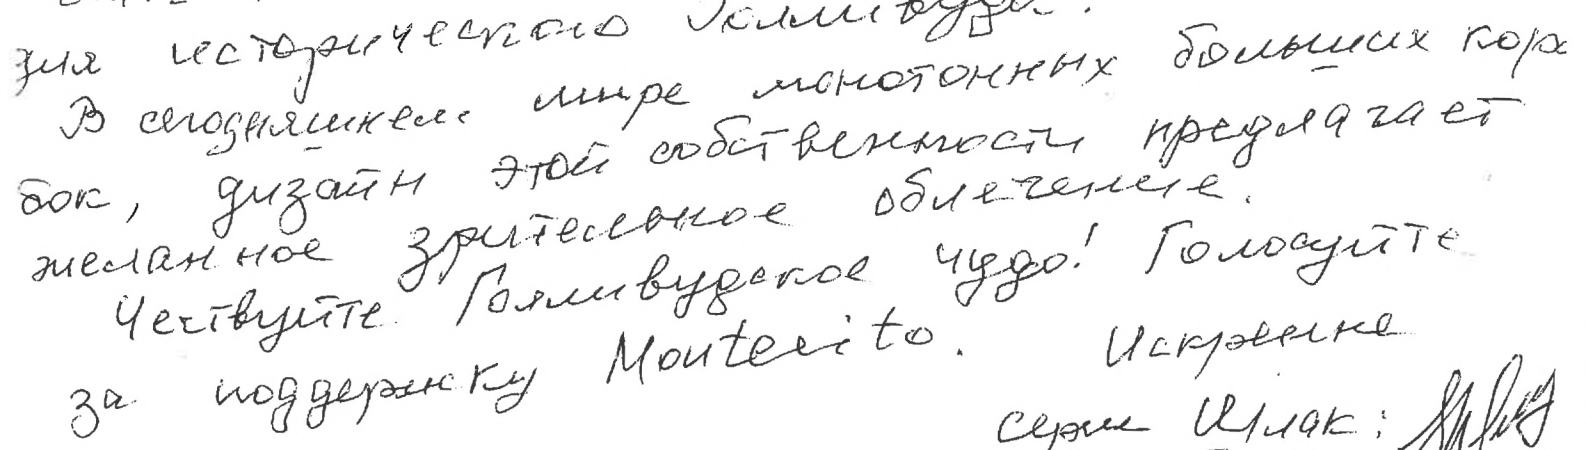 зия исторического Голливуда.
В сегодняшнем мире монотонных больших коро
бок, дизайн этой собственности предлагает
желанное зрительное облегчение.
Чествуйте Голливудское чудо! Голосуйте
за поддержку Montecito. Искренне
Шпак: